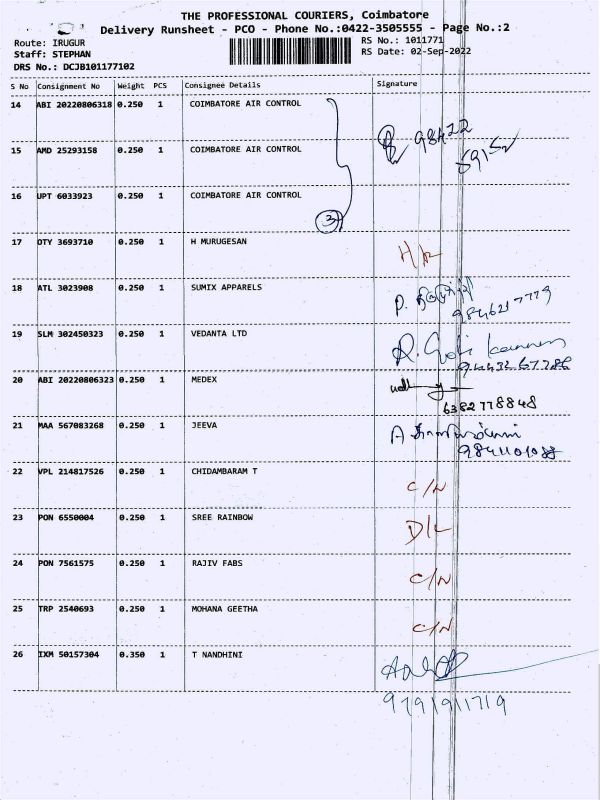 THE PROFESSIONAL COURIERS, Coimbatore
Delivery Runsheet - PCO - Phone No.:0422-3505555 - Page No.:2
Route: IRUGUR
RS No.: 1011771
Staff: STEPHAN
RS Date: 02-Sep-2022
DRS No.: DCJB101177102
S No Consignment No Weight PCS Consignee Details Signature
14 ABI 20220806318 0.250 1 COIMBATORE AIR CONTROL
98422
15 AMD 25293158 0.250 1 COIMBATORE AIR CONTROL
16 UPT 6033923 0.250 1 COIMBATORE AIR CONTROL
3
17 OTY 3693710 0.250 1 H MURUGESAN
18 ATL 3023908 0.250 1 SUMIX APPARELS
P.
19 SLM 302450323 0.250 1 VEDANTA LTD
R. Gobi
20 ABI 20220806323 0.250 1 MEDEX
6382778848
21 MAA 567083268 0.250 1 JEEVA
A
22 VPL 214817526 0.250 1 CHIDAMBARAM T
C/N
23 PON 6550004 0.250 1 SREE RAINBOW
D/L
24 PON 7561575 0.250 1 RAJIV FABS
C/N
25 TRP 2540693 0.250 1 MOHANA GEETHA
C/N
26 IXM 50157304 0.350 1 T NANDHINI
9791911719